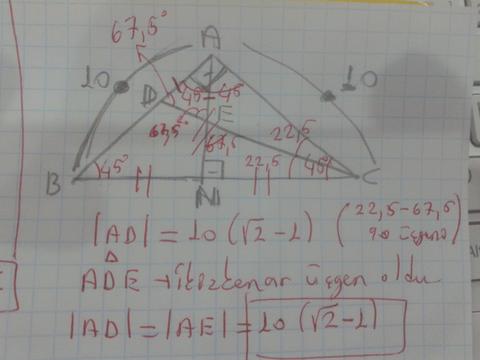 67,5°
A
10
10
D
45
45
E
67,5°
67,5
22,5
22,5
45°
45°
B
N
C
|AD| = 10(√2-1) (22,5-67,5
90 üçgeni)
ADE → ikizkenar üçgen oldu
|AD| = |AE| = 10(√2-1)